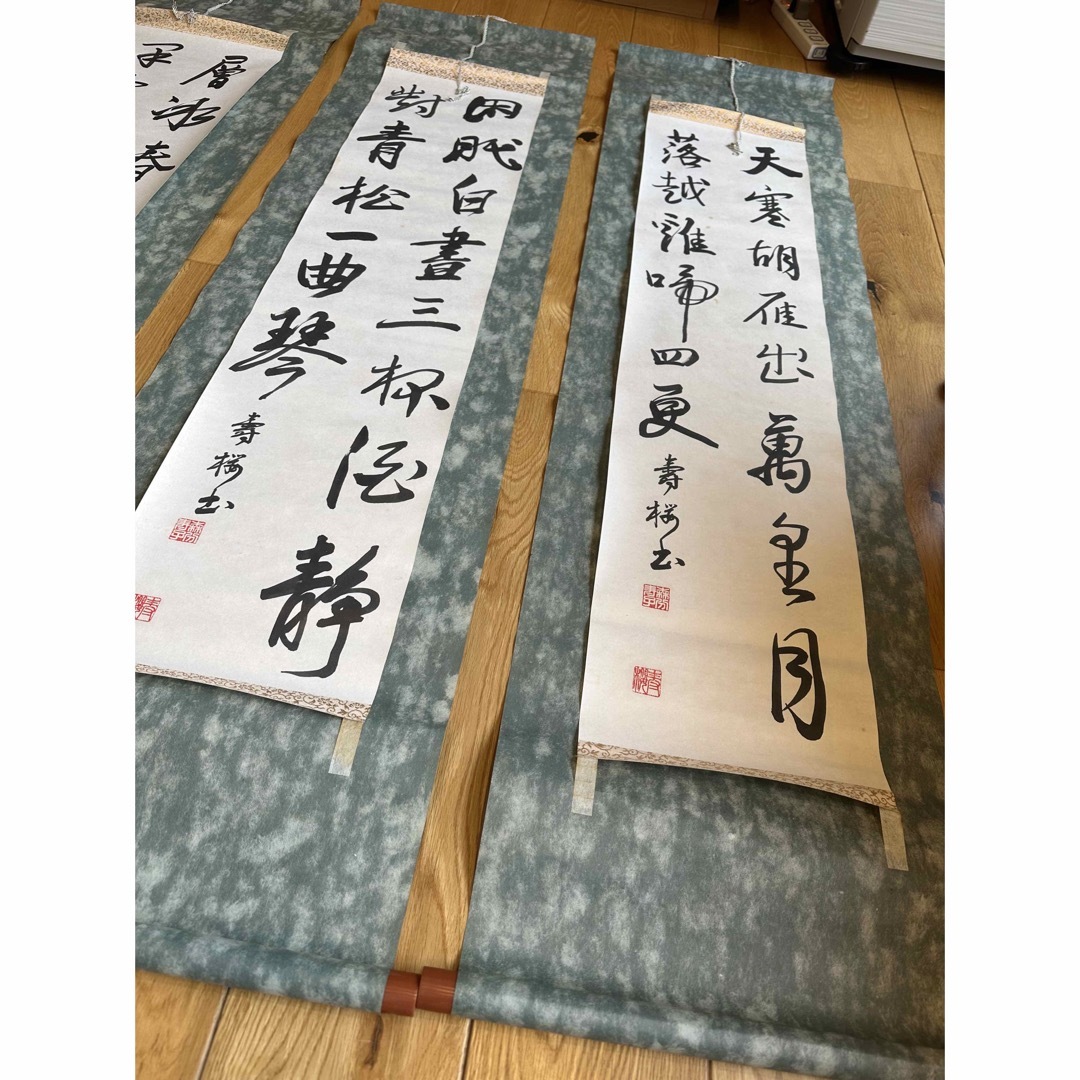 天寒胡雁出萬里月
落越雞啼四更
壽桜書
眠白晝三杯酒靜
對青松一曲琴
壽桜書
層冰春